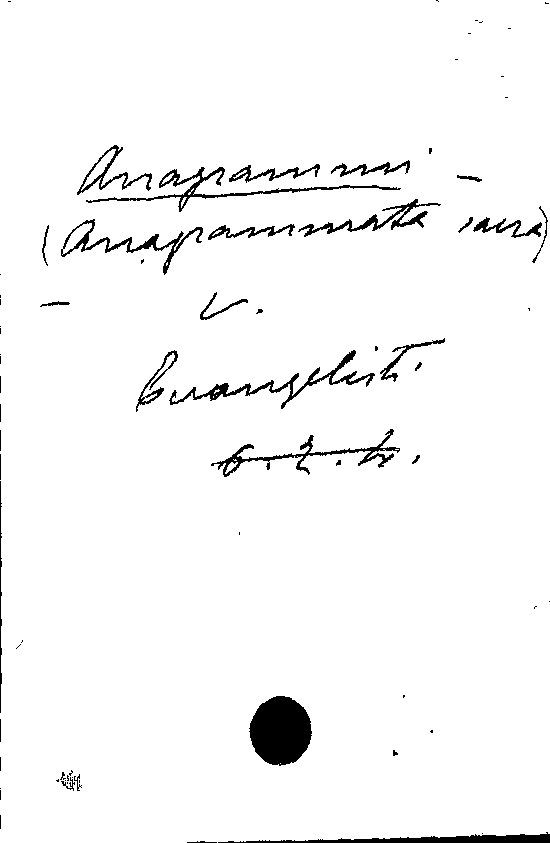 Anagrammi -
(Anagrammata sacra)
- v.
Evangelisti.
6.2.4.